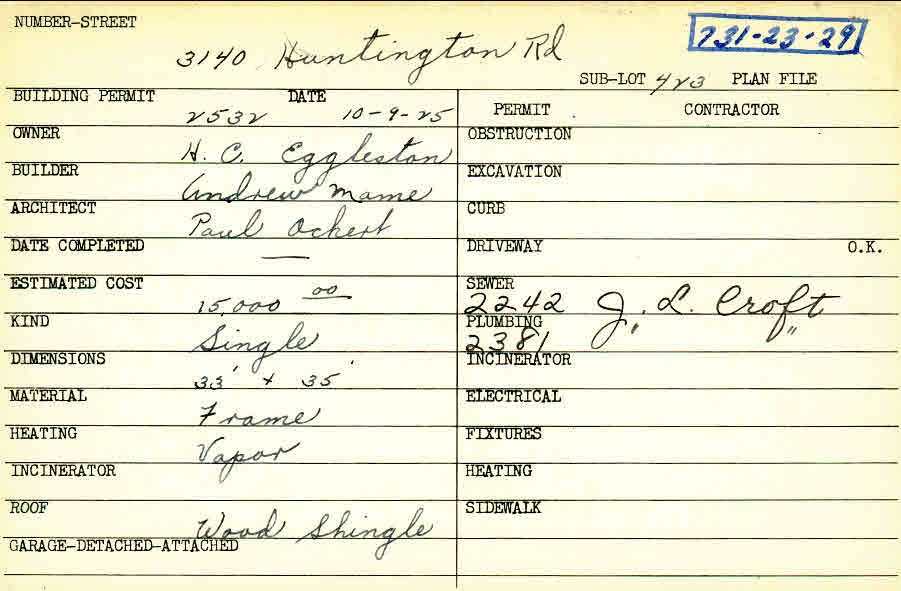 NUMBER-STREET
3140 Huntington Rd
731-23-29
SUB-LOT 423 PLAN FILE
BUILDING PERMIT 2532 DATE 10-9-25
PERMIT CONTRACTOR
OWNER H. C. Eggleston
OBSTRUCTION
BUILDER Andrew Mame
EXCAVATION
ARCHITECT Paul Ochert
CURB
DATE COMPLETED —
DRIVEWAY O.K.
ESTIMATED COST 15,000 00
SEWER 2242 J. L. Croft
KIND Single
PLUMBING 2381 " "
DIMENSIONS 33' + 35'
INCINERATOR
MATERIAL Frame
ELECTRICAL
HEATING Vapor
FIXTURES
INCINERATOR
HEATING
ROOF Wood Shingle
SIDEWALK
GARAGE-DETACHED-ATTACHED